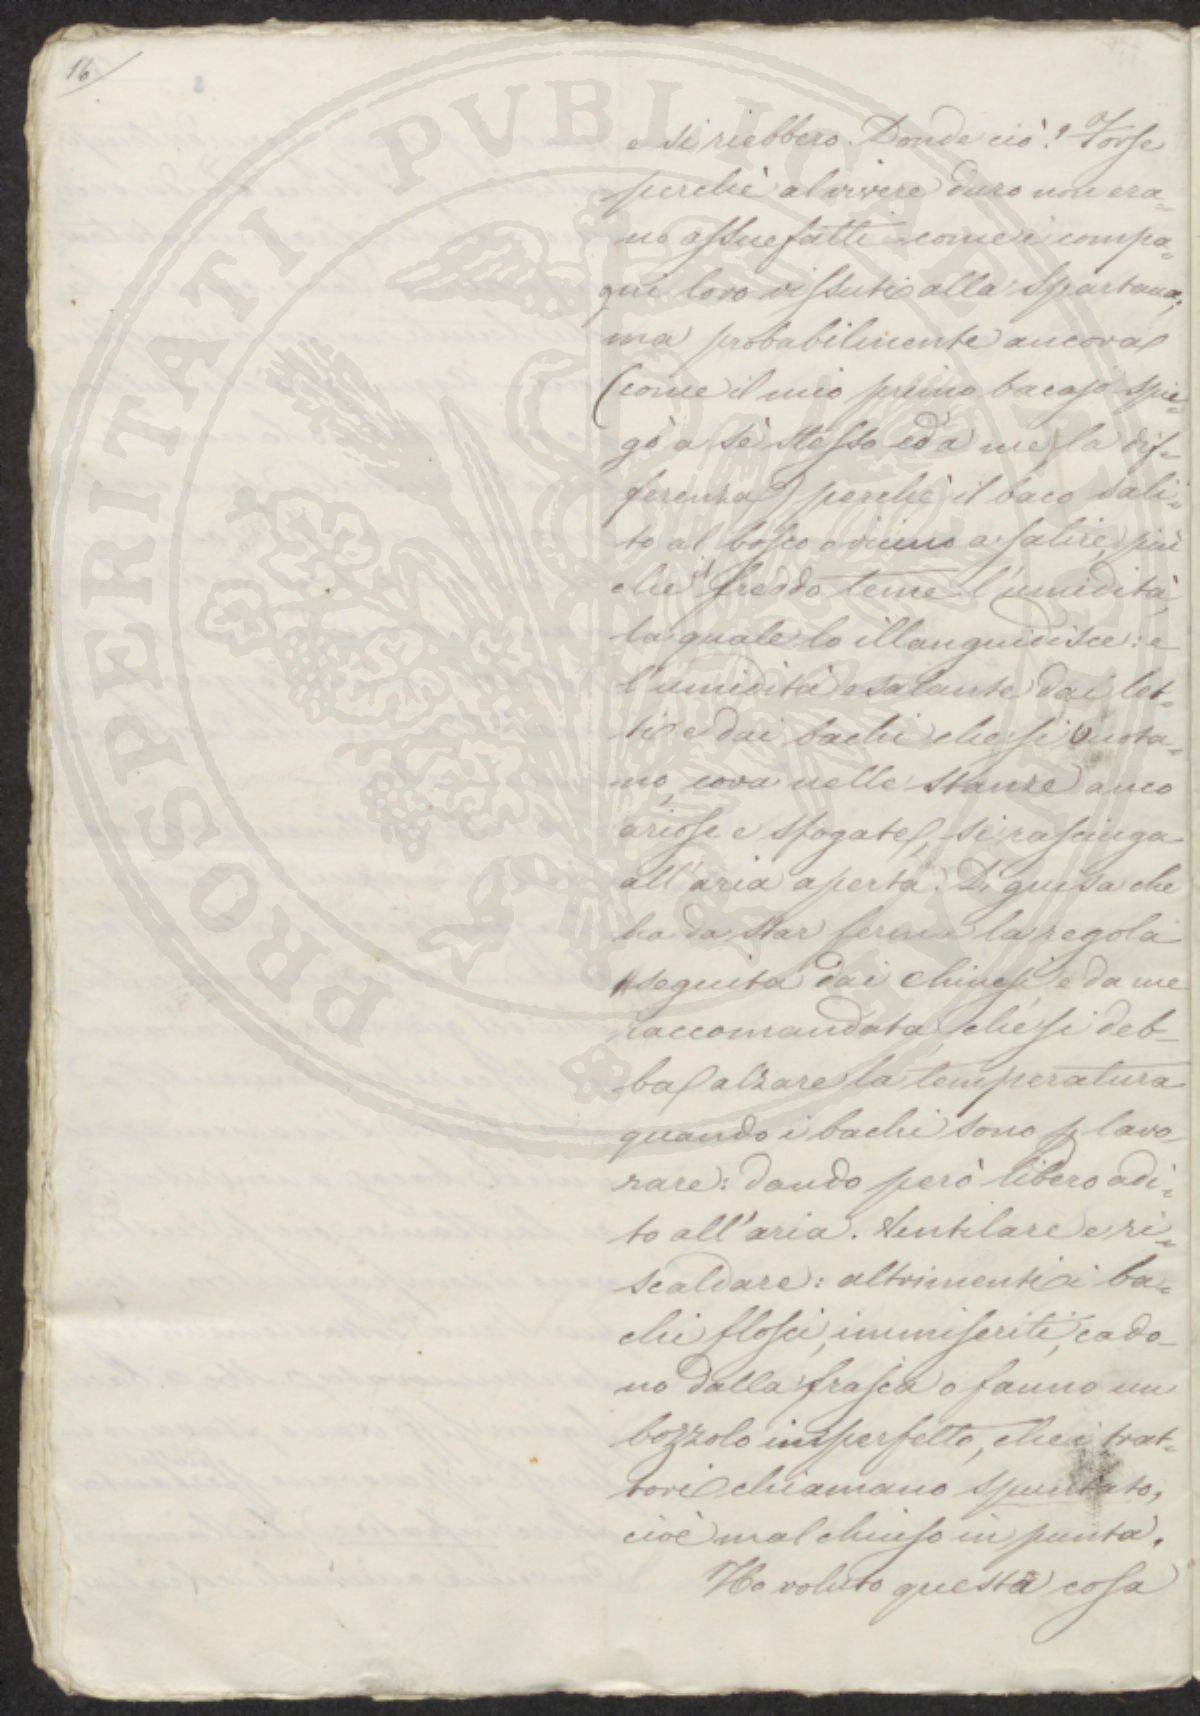 16
e si riebbero. Donde ciò? Forse
perchè al vivere duro non era=
no assuefatti come i compa=
gni loro vissuti alla spartana;
ma probabilmente ancora
(come il mio primo bacajo spie=
gò a sè stesso ed a me, la dif=
ferenza) perchè il baco sali=
to al bosco o vicino a salire, più
che 'l freddo teme l'umidità,
la quale lo illanguidisce: e
l'umidità esalante dai let=
ti e dai bachi che si vuota=
no, cova nelle stanze anco
ariose e sfogate, si rasciuga
all'aria aperta. Di guisa che
ha da star ferma la regola
seguita dai chinesi, e da me
raccomandata, che si deb=
ba alzare la temperatura
quando i bachi sono p lavo=
rare: dando però libero adi=
to all'aria. Ventilare e ri=
scaldare: altrimenti i ba=
chi flosci, immiseriti, cado=
no dalla frasca o fanno un
bozzolo imperfetto, che i trat=
tori chiamano spuntato,
cioè mal chiuso in punta.
Ho voluto questa cosa
PROSPERITATI PUBLICAE AUGENDAE